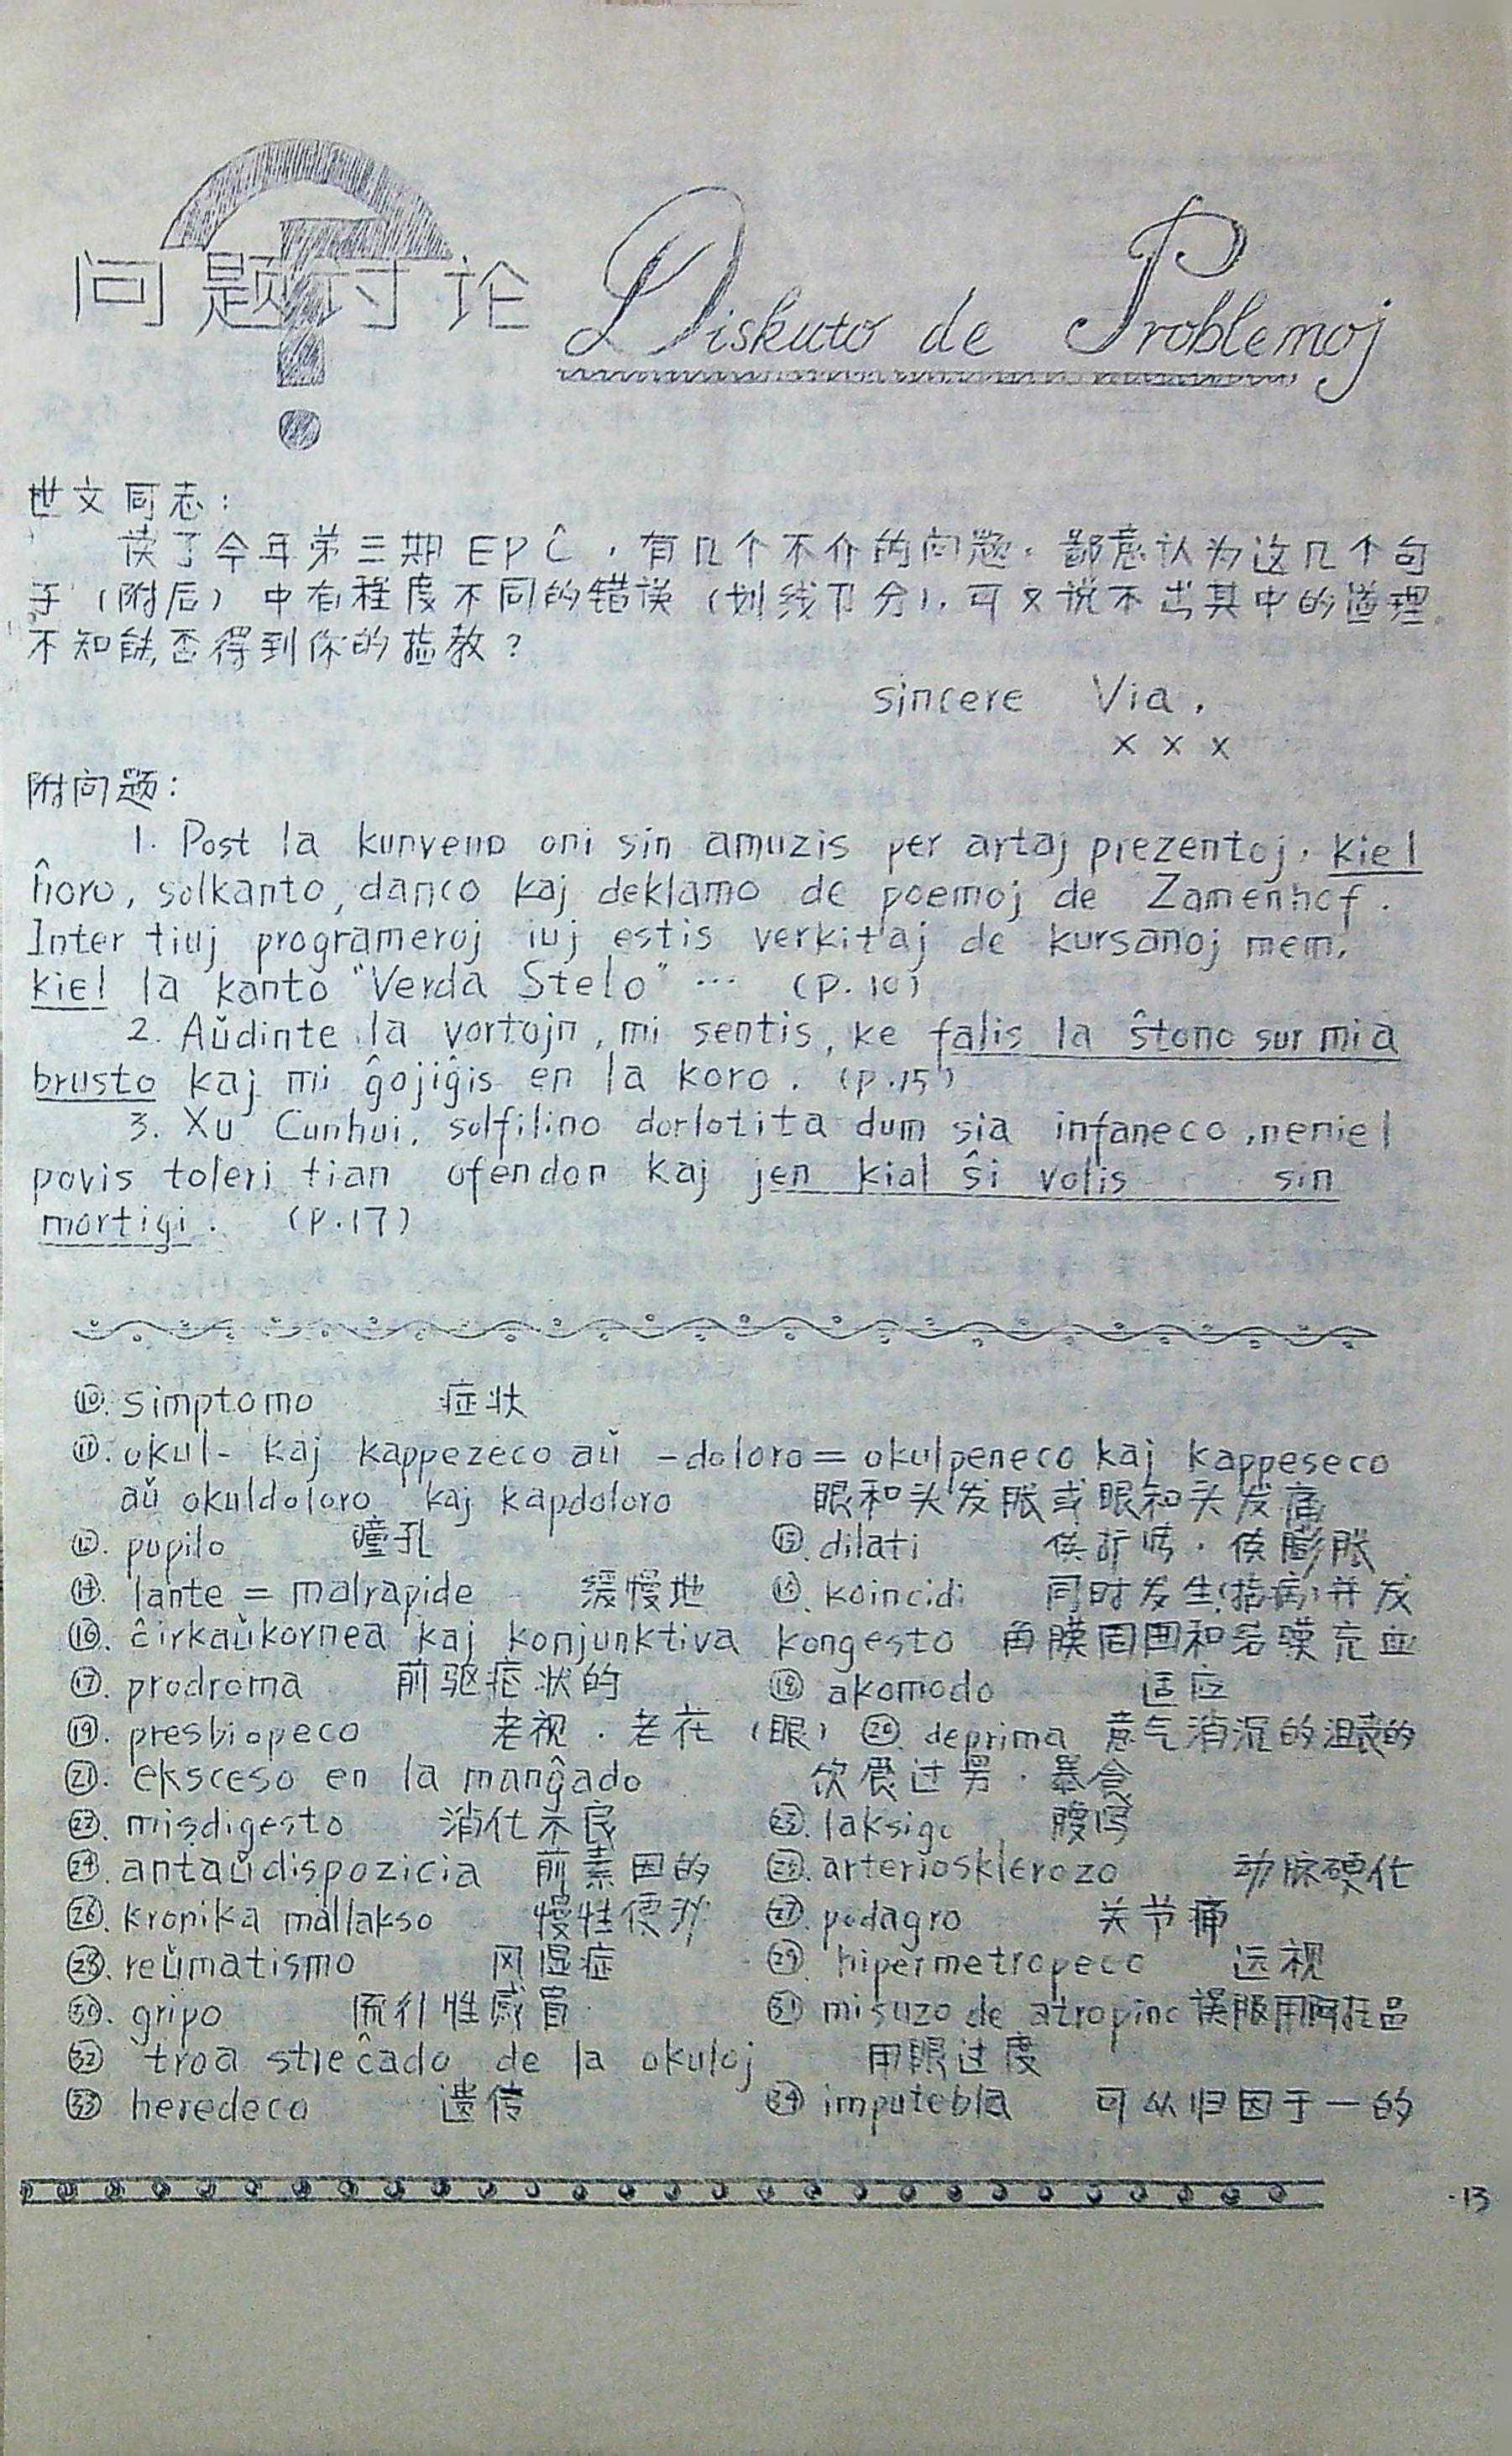 问题讨论 Diskuto de Problemoj
世文同志：
读了今年第三期 EPĈ，有几个不介的问题。鄙意认为这几个句
子（附后）中有程度不同的错误（划线卩分），可又说不出其中的道理。
不知能否得到你的指教？
sincere Via,
x x x
附问题：
1. Post la kunveno oni sin amuzis per artaj prezentoj, kiel
ĥoro, solkanto, danco kaj deklamo de poemoj de Zamenhof.
Inter tiuj programeroj iuj estis verkitaj de kursanoj mem,
kiel la kanto "Verda Stelo" … (p. 10)
2. Aŭdinte la vortojn, mi sentis, ke falis la ŝtono sur mia
brusto kaj mi ĝojiĝis en la koro. (p. 15)
3. Xu Cunhui, solfilino dorlotita dum sia infaneco, neniel
povis toleri tian ofendon kaj jen kial ŝi volis sin
mortigi. (p. 17)
⑩. simptomo 症状
⑪. okul- kaj kappezeco aŭ -doloro = okulpeneco kaj kappeseco
aŭ okuldoloro kaj kapdoloro 眼和头发胀或眼和头发痛
⑫. pupilo 瞳孔 ⑬. dilati 使扩张．使膨胀
⑭. lante = malrapide 缓慢地 ⑮. koincidi 同时发生（指病）并发
⑯. ĉirkaŭkornea kaj konjunktiva kongesto 角膜周围和结膜充血
⑰. prodroma 前驱症状的 ⑱ akomodo 适应
⑲. presbiopeco 老视．老花（眼） ⑳. deprima 意气消沉的沮丧的
㉑. eksceso en la manĝado 饮食过量．暴食
㉒. misdigesto 消化不良 ㉓. laksigo 腹泻
㉔. antaŭdispozicia 前素因的 ㉕. arteriosklerozo 动脉硬化
㉖. kronika mallakso 慢性便秘 ㉗. podagro 关节痛
㉘. reŭmatismo 风湿症 ㉙. hipermetropeco 远视
㉚. gripo 流行性感冒 ㉛ misuzo de atropino 误服用阿托品
㉜ troa streĉado de la okuloj 用眼过度
㉝ heredeco 遗传 ㉞ imputebla 可以归因于一的
·13